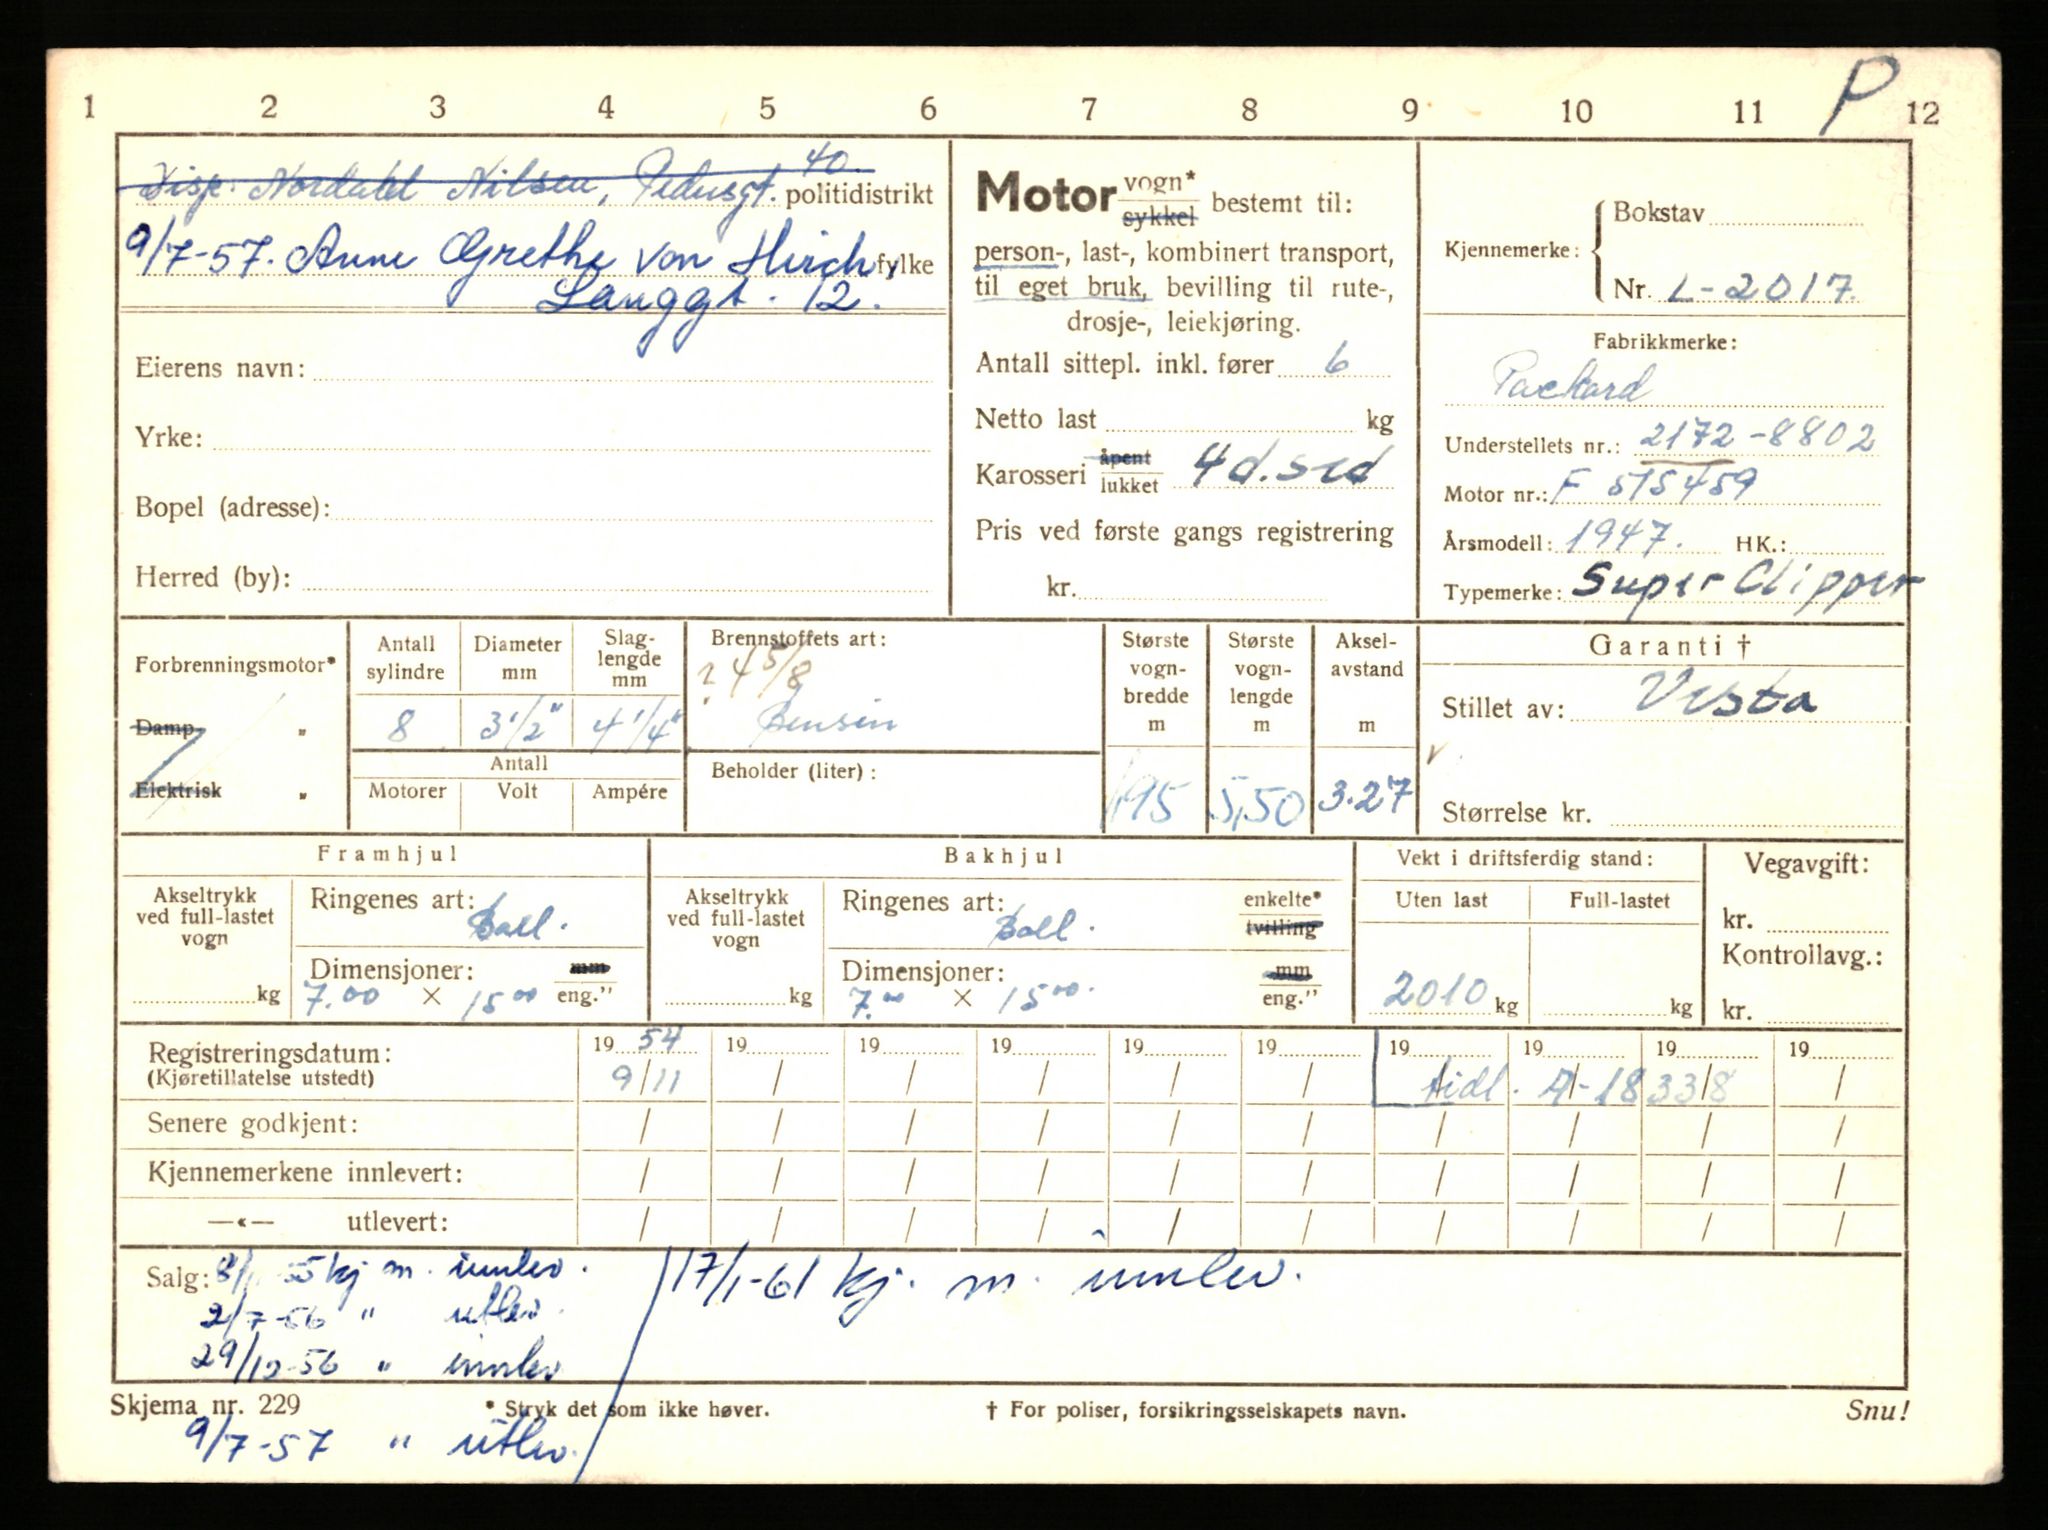 P
1 2 3 4 5 6 7 8 9 10 11 12
Disp. Nordahl Nilsen, Pedersgt. 40 politidistrikt
9/7-57. Anne Grethe von Hirch, fylke
Langgt. 12.
Eierens navn:
Yrke:
Bopel (adresse):
Herred (by):
Motor vogn*
sykkel bestemt til:
person-, last-, kombinert transport,
til eget bruk, bevilling til rute-,
drosje-, leiekjøring.
Antall sittepl. inkl. fører 6
Netto last kg
Karosseri åpent
lukket 4 d. sed
Pris ved første gangs registrering
kr.
Kjennemerke: Bokstav
Nr. L-2017.
Fabrikkmerke:
Packard
Understellets nr.: 2172-8802
Motor nr.: F 515459
Årsmodell: 1947. HK.:
Typemerke: Super Clipper
Forbrenningsmotor*
Damp „
Elektrisk „
Antall sylindre 8
Diameter mm 3 1/2"
Slaglengde mm 4 1/4"
Antall
Motorer Volt Ampére
Brennstoffets art:
? 4 5/8
Bensin
Beholder (liter):
Største vogn-bredde m 1,95
Største vogn-lengde m 5,50
Aksel-avstand m 3.27
Garanti †
Stillet av: Vesta
Størrelse kr.
Framhjul
Akseltrykk ved full-lastet vogn
kg
Ringenes art: Ball.
Dimensjoner: mm
7.00 × 15 00 eng.”
Bakhjul
Akseltrykk ved full-lastet vogn
kg
Ringenes art: Ball. enkelte*
tvilling
Dimensjoner: mm
7.00 × 15 00. eng.”
Vekt i driftsferdig stand:
Uten last Full-lastet
2010 kg kg
Vegavgift:
kr.
Kontrollavg.:
kr.
Registreringsdatum: 19 54 19 19 19 19 19 19 19 19 19
(Kjøretillatelse utstedt) 9/11 / / / / / tidl. A-18338 /
Senere godkjent: / / / / / / / / / /
Kjennemerkene innlevert: / / / / / / / / / /
—«— utlevert: / / / / / / / / / /
Salg: 8/11-55 kj. m. innlev. 17/1-61 kj. m. innlev.
2/7-56 " utlev.
29/12-56 " innlev.
Skjema nr. 229 * Stryk det som ikke høver. † For poliser, forsikringsselskapets navn. Snu!
9/7-57 " utlev.